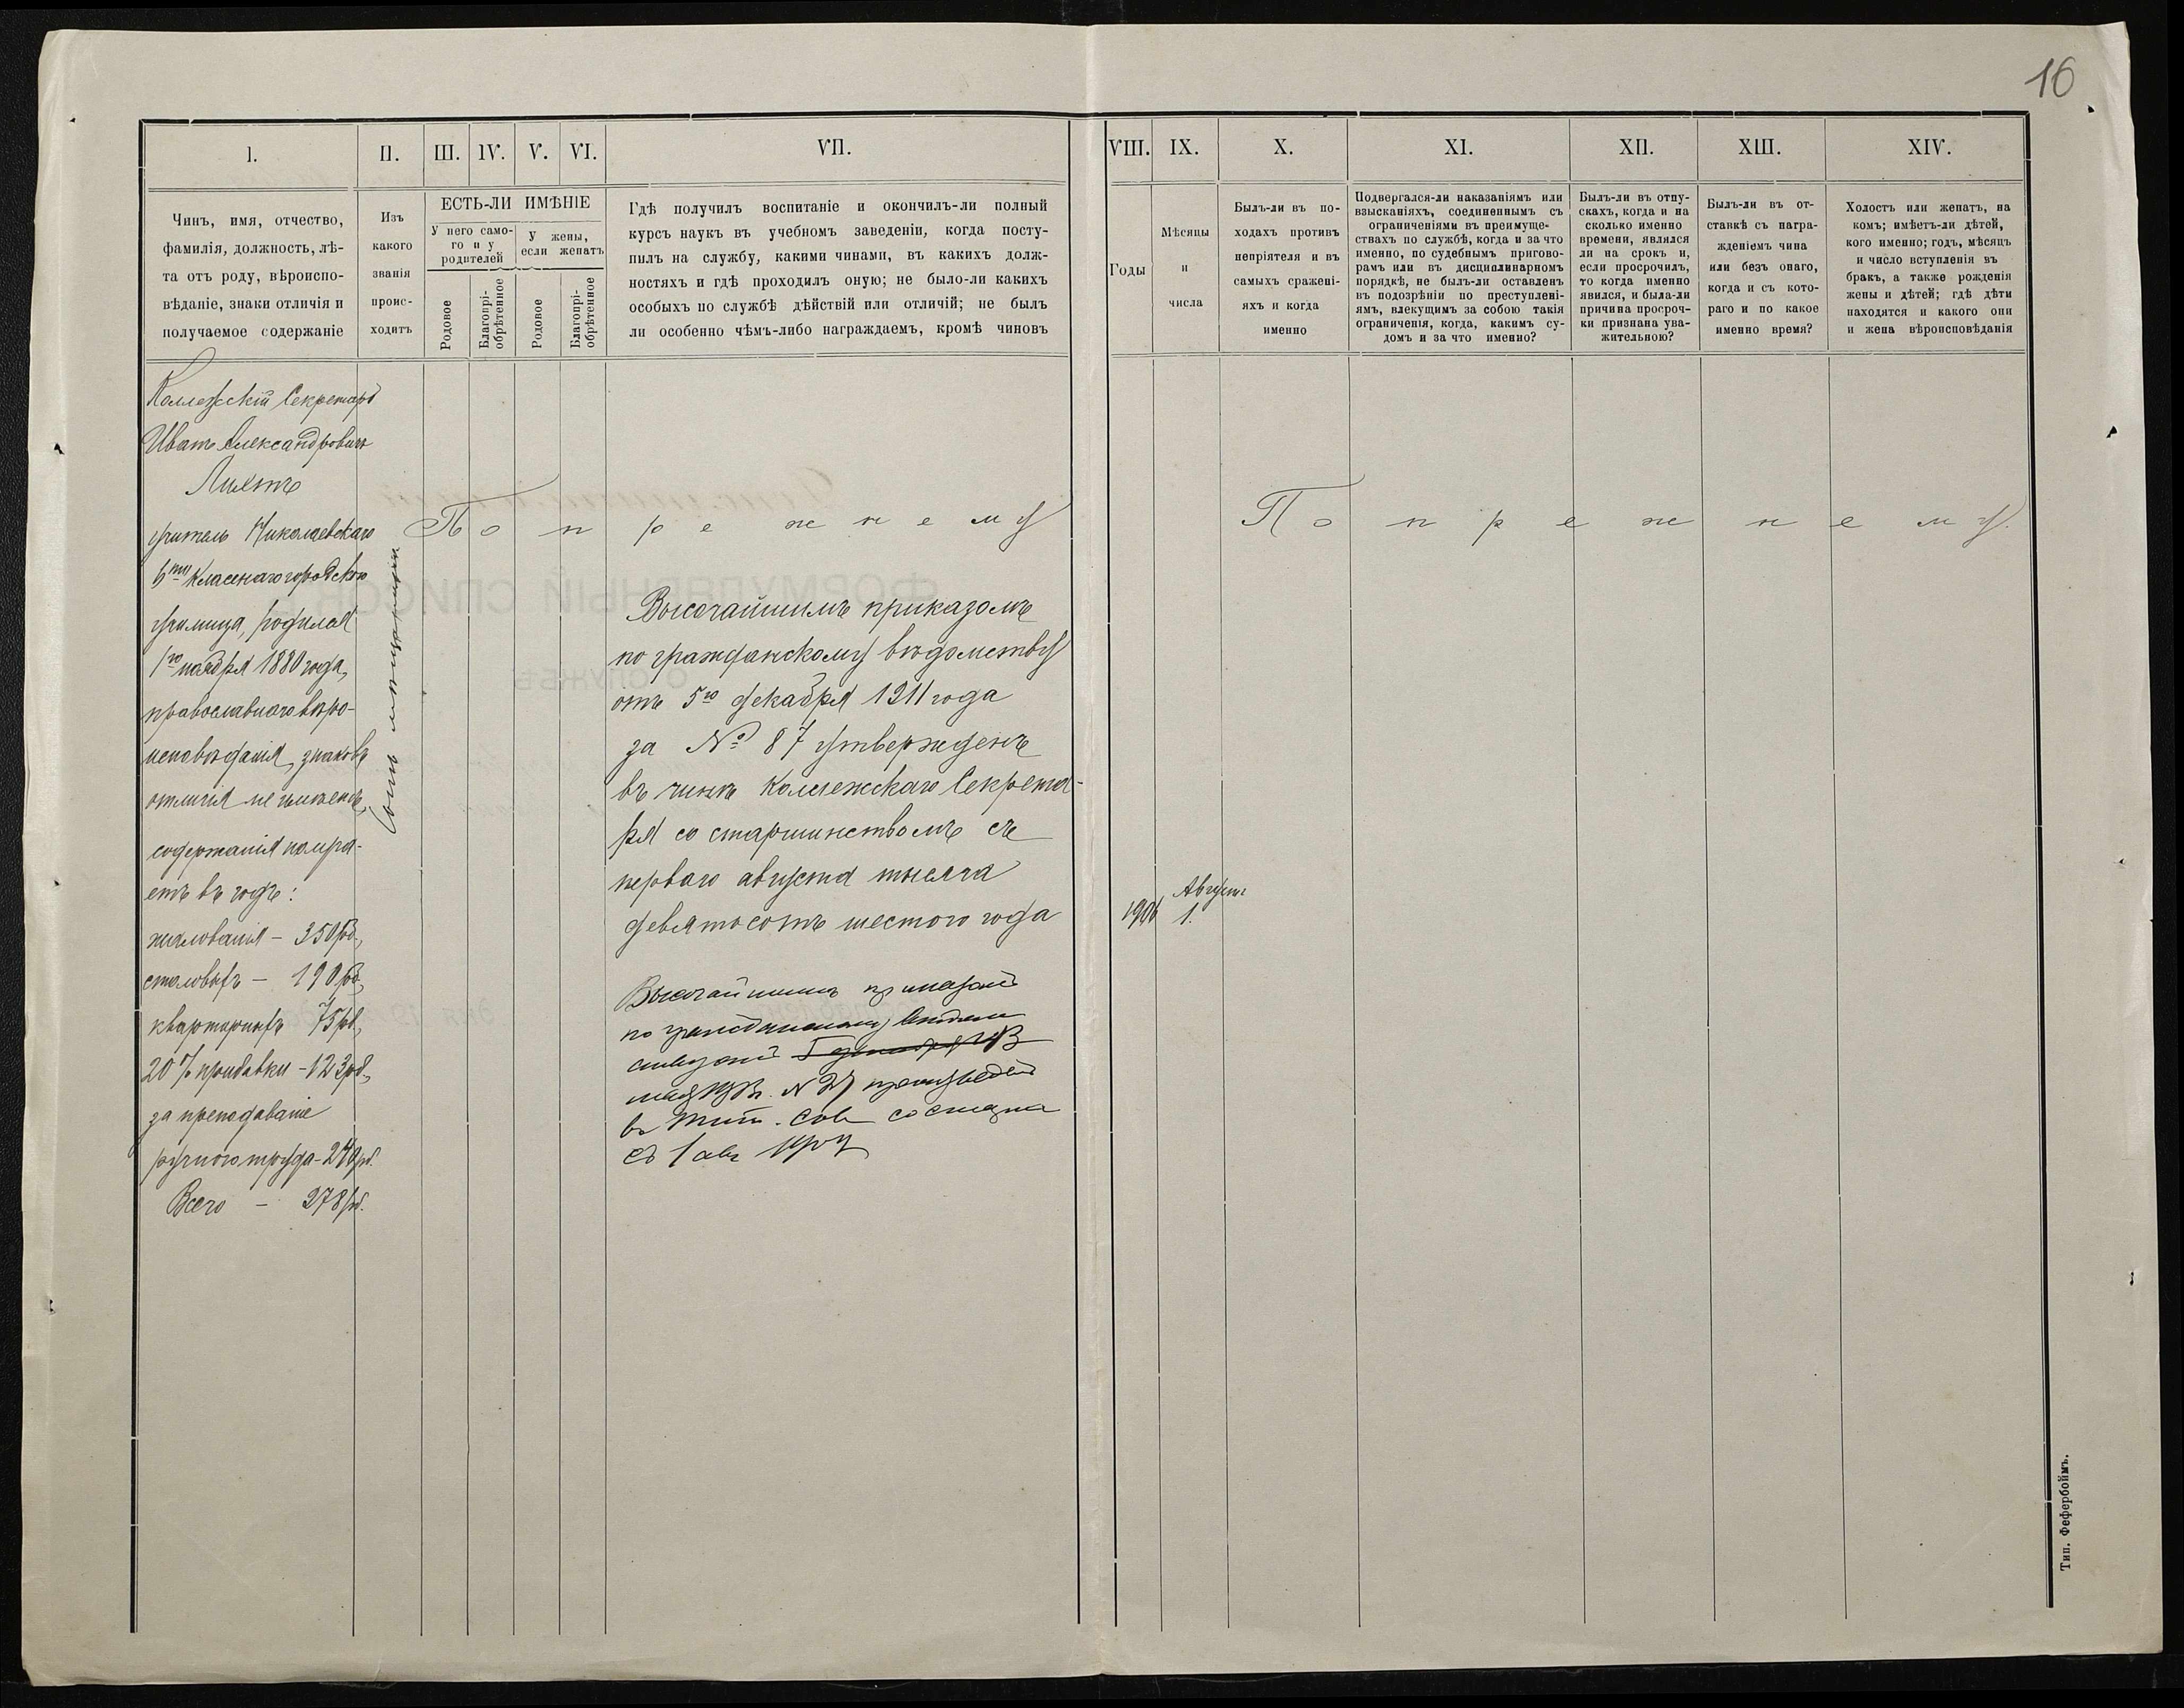 16
I.
II.
III.
IV.
V.
VI.
VII.
VIII.
IX.
X.
XI.
XII.
XIII.
XIV.
Чинъ, имя, отчество,
фамилія, должность, лѣ-
та отъ роду, вѣроиспо-
вѣданіе, знаки отличія и
получаемое содержаніе
Изъ
какого
званія
проис-
ходитъ
ЕСТЬ-ЛИ ИМѢНІЕ
У него само-
го и у
родителей
У жены,
если женатъ
Родовое
Благопрі-
обрѣтенное
Родовое
Благопрі-
обрѣтенное
Гдѣ получилъ воспитаніе и окончилъ-ли полный
курсъ наукъ въ учебномъ заведеніи, когда посту-
пилъ на службу, какими чинами, въ какихъ долж-
ностяхъ и гдѣ проходилъ оную; не было-ли какихъ
особыхъ по службѣ дѣйствій или отличій; не былъ
ли особенно чѣмъ-либо награждаемъ, кромѣ чиновъ
Годы
Мѣсяцы
и
числа
Былъ-ли въ по-
ходахъ противъ
непріятеля и въ
самыхъ сражені-
яхъ и когда
именно
Подвергался-ли наказаніямъ или
взысканіяхъ, соединеннымъ съ
ограниченіями въ преимуще-
ствахъ по службѣ, когда и за что
именно, по судебнымъ пригово-
рамъ или въ дисциплинарномъ
порядкѣ, не былъ-ли оставленъ
въ подозрѣніи по преступлені-
ямъ, влекущимъ за собою такія
ограниченія, когда, какимъ су-
домъ и за что именно?
Былъ-ли въ отпу-
скахъ, когда и на
сколько именно
времени, являлся
ли на срокъ и,
если просрочилъ,
то когда именно
явился, и была-ли
причина просроч-
ки признана ува-
жительною?
Былъ-ли въ от-
ставкѣ съ награ-
жденіемъ чина
или безъ онаго,
когда и съ кото-
раго и по какое
именно время?
Холостъ или женатъ, на
комъ; имѣетъ-ли дѣтей,
кого именно; годъ, мѣсяцъ
и число вступленія въ
бракъ, а также рожденія
жены и дѣтей; гдѣ дѣти
находятся и какого они
и жена вѣроисповѣданія
Коллежскій Секретарь
Иванъ Александровичъ
учитель Николаевскаго
6ти класснаго городского
училища, родился
1го ноября 1880 года,
православнаго вѣро-
исповѣданія, знаковъ
отличія не имѣетъ,
содержанія получа-
етъ въ годъ:
жалованья – 350 рб.,
столовыхъ – 190 рб.,
квартирныхъ 75 рб.,
20% прибавки – 123 рб.,
за преподаваніе
ручного труда – 240 рб.
Всего –
По прежнему
Высочайшимъ приказомъ
по гражданскому вѣдомству
отъ 5го декабря 1911 года
за № 87 утвержденъ
въ чинѣ Коллежскаго Секрета-
ря со старшинствомъ съ
перваго августа тысяча
девятьсотъ шестого года
1906
Августа
1.
Высочайшимъ приказомъ
по гражданскому
произведенъ
въ Тит. Сов.
съ 1 авг
По прежнему.
Тип. Фефербоймъ.